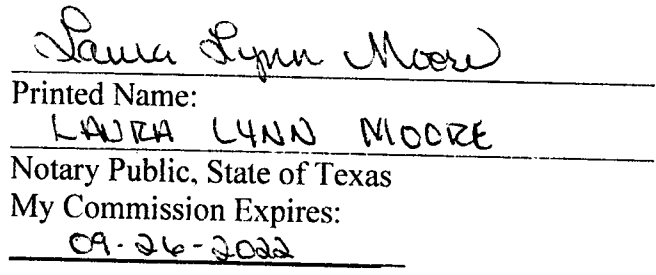 Laura Lynn Moore
Printed Name:
LAURA LYNN MOORE
Notary Public, State of Texas
My Commission Expires:
09-26-2022